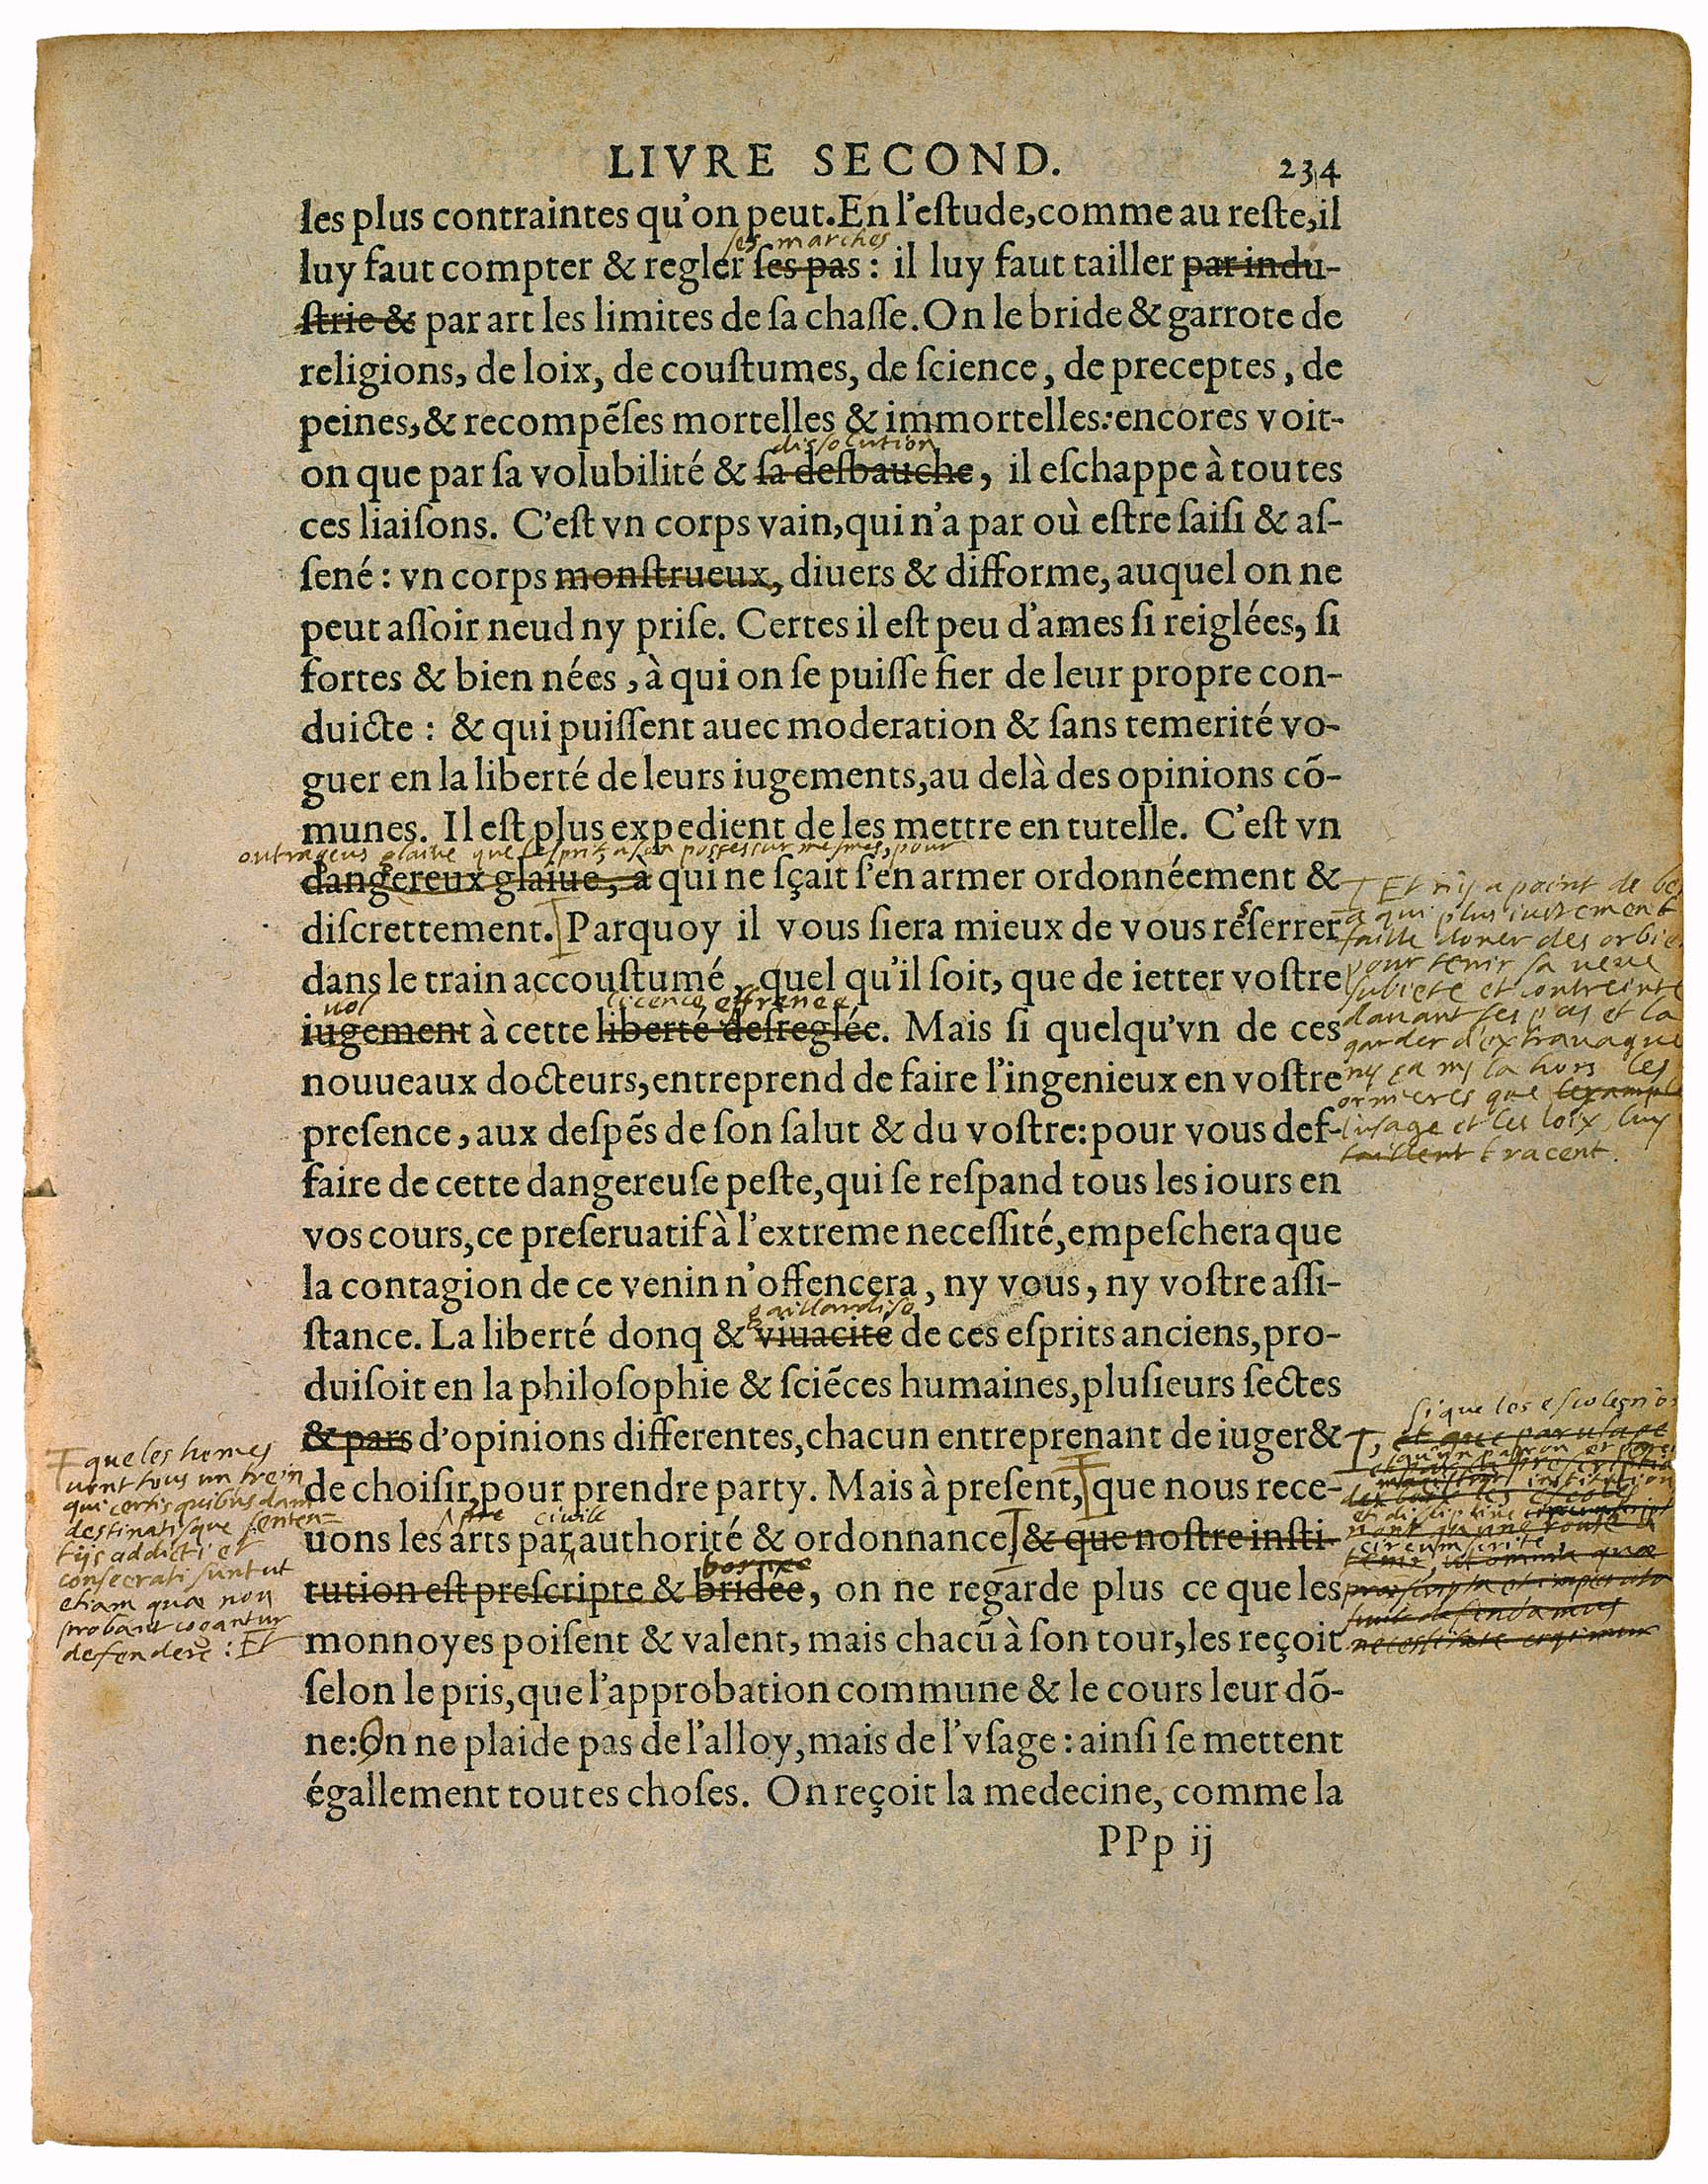 LIVRE SECOND. 234
les plus contraintes qu'on peut. En l'eſtude, comme au reſte, il
ses marches
luy faut compter & regler ſes pas : il luy faut tailler par indu-
ſtrie & par art les limites de ſa chaſſe. On le bride & garrote de
religions, de loix, de couſtumes, de ſcience, de preceptes, de
peines, & recompẽſes mortelles & immortelles: encores voit-
dissolution
on que par ſa volubilité & ſa deſbauche, il eſchappe à toutes
ces liaiſons. C'eſt vn corps vain, qui n'a par où eſtre ſaiſi & aſ-
ſené : vn corps monſtrueux, diuers & difforme, auquel on ne
peut aſſoir neud ny priſe. Certes il eſt peu d'ames ſi reiglées, ſi
fortes & bien nées, à qui on ſe puiſſe fier de leur propre con-
duicte : & qui puiſſent auec moderation & ſans temerité vo-
guer en la liberté de leurs iugements, au delà des opinions cõ-
munes. Il eſt plus expedient de les mettre en tutelle. C'eſt vn
outrageus glaiue que l'esprit, a son possessur mesmes, pour
dangereux glaiue, à qui ne ſçait s'en armer ordonnéement &
diſcrettement. Parquoy il vous ſiera mieux de vous reſſerrer
dans le train accouſtumé, quel qu'il ſoit, que de ietter voſtre
vol licence effrenee
iugement à cette liberté deſreglée. Mais ſi quelqu'vn de ces
nouueaux docteurs, entreprend de faire l'ingenieux en voſtre
preſence, aux deſpẽs de ſon ſalut & du voſtre: pour vous deſ-
faire de cette dangereuſe peſte, qui ſe reſpand tous les iours en
vos cours, ce preſeruatif à l'extreme neceſſité, empeſchera que
la contagion de ce venin n'offencera, ny vous, ny voſtre aſſi-
gaillardise
ſtance. La liberté donq & viuacité de ces eſprits anciens, pro-
duiſoit en la philoſophie & ſciẽces humaines, pluſieurs ſectes
& pars d'opinions differentes, chacun entreprenant de iuger &
de choiſir, pour prendre party. Mais à preſent, que nous rece-
civile
uons les arts par authorité & ordonnance, & que noſtre inſti-
bornee
tution eſt preſcripte & bridée, on ne regarde plus ce que les
monnoyes poiſent & valent, mais chacũ à ſon tour, les reçoit
ſelon le pris, que l'approbation commune & le cours leur dõ-
ne: On ne plaide pas de l'alloy, mais de l'vſage : ainſi ſe mettent
égallement toutes choſes. On reçoit la medecine, comme la
PPp ij
Et n'y a point de be
a qui plus iustement
faille doner des orbie
pour tenir sa veue
subiete et contreinte
dauant ses pas et la
garder d'extrauague
ny ça ny la hors les
ornieres que lexample
l'usage et les loix luy
tracent.
que les homes
uont tous un trein
qui certis quibusdam
destinatisque senten=
tijs addicti et
consecrati sunt ut
etiam quæ non
probant cogantur
defendere : Et
si que les escoles n'o
qu'un patron et
institution
et discipline
circumscrite